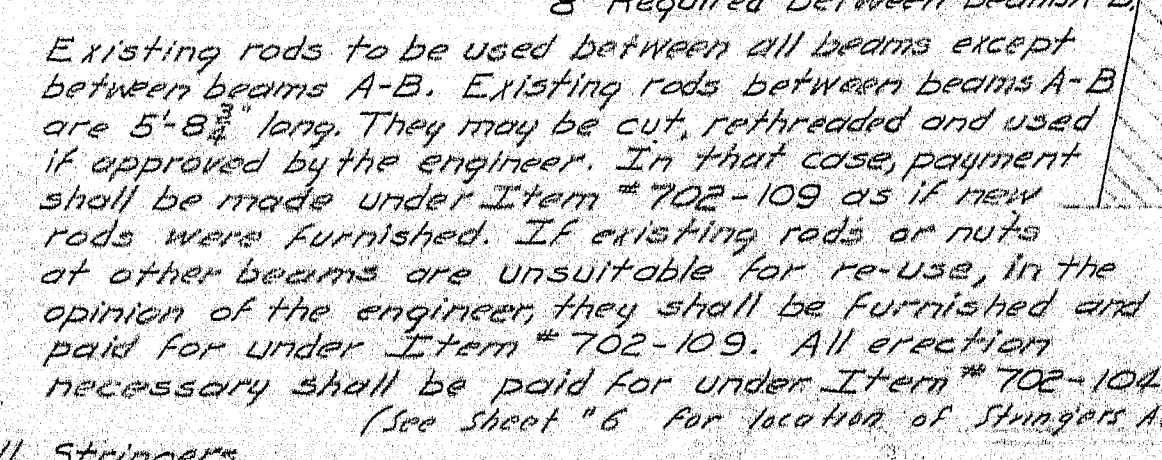 8 Required between beams
Existing rods to be used between all beams except
between beams A-B. Existing rods between beams A-B
are 5'-8 3/4" long. They may be cut, rethreaded and used
if approved by the engineer. In that case, payment
shall be made under Item #702-109 as if new
rods were furnished. If existing rods or nuts
at other beams are unsuitable for re-use, in the
opinion of the engineer, they shall be furnished and
paid for under Item #702-109. All erection
necessary shall be paid for under Item #702-104
(See Sheet #6 for location of Stringers A
Stringers